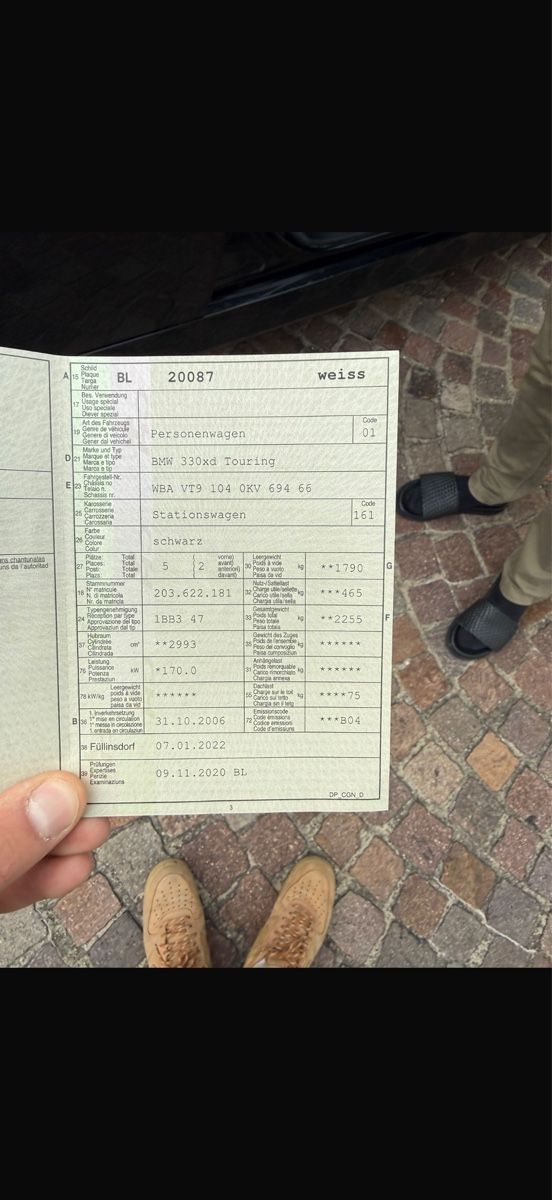 A 15 Schild Plaque Targa Numer BL 20087 weiss
17 Bes. Verwendung Usage spécial Uso speciale Diever spezial
19 Art des Fahrzeugs Genre de véhicule Genere di veicolo Gener dal vehichel Personenwagen Code 01
D 21 Marke und Typ Marque et type Marca e tipo Marca e tip BMW 330xd Touring
E 23 Fahrgestell-Nr. Châssis no Telaio n. Schassis nr. WBA VT9 104 0KV 694 66
25 Karosserie Carrosserie Carrozzeria Carossaria Stationswagen Code 161
26 Farbe Couleur Colore Colur schwarz
27 Plätze: Total Places: Total Posti: Totale Plazs: Total 5 { 2 vorne) avant) anteriori) davant) 30 Leergewicht Poids à vide Peso a vuoto Paisa da vid kg **1790 G
18 Stammnummer N° matricule N. di matricola Nr. da matricla 203.622.181 32 Nutz-/Sattellast Charge utile/sellette Carico utile/sella Chargia utila/sella kg ***465
24 Typengenehmigung Réception par type Approvazione del tipo Approvaziun dal tip 1BB3 47 33 Gesamtgewicht Poids total Peso totale Paisa totala kg **2255 F
37 Hubraum Cylindrée Cilindrata Cilindrada cm³ **2993 35 Gewicht des Zuges Poids de l'ensemble Peso del convoglio Paisa cumposiziun kg ******
76 Leistung Puissance Potenza Prestaziun kW *170.0 31 Anhängelast Poids remorquable Carico rimorchiato Chargia annexa kg ******
78 kW/kg Leergewicht poids à vide peso a vuoto paisa da vid ****** 55 Dachlast Charge sur le toit Carico sul tetto Chargia sin il tetg kg ****75
B 36 1. Inverkehrsetzung 1re mise en circulation 1a messa in circolazione 1. entrada en circulaziun 31.10.2006 72 Emissionscode Code émissions Codice emissioni Code d'emissiuns ***B04
38 Füllinsdorf 07.01.2022
39 Prüfungen Expertises Perizie Examinaziuns 09.11.2020 BL
DP_CGN_D
3